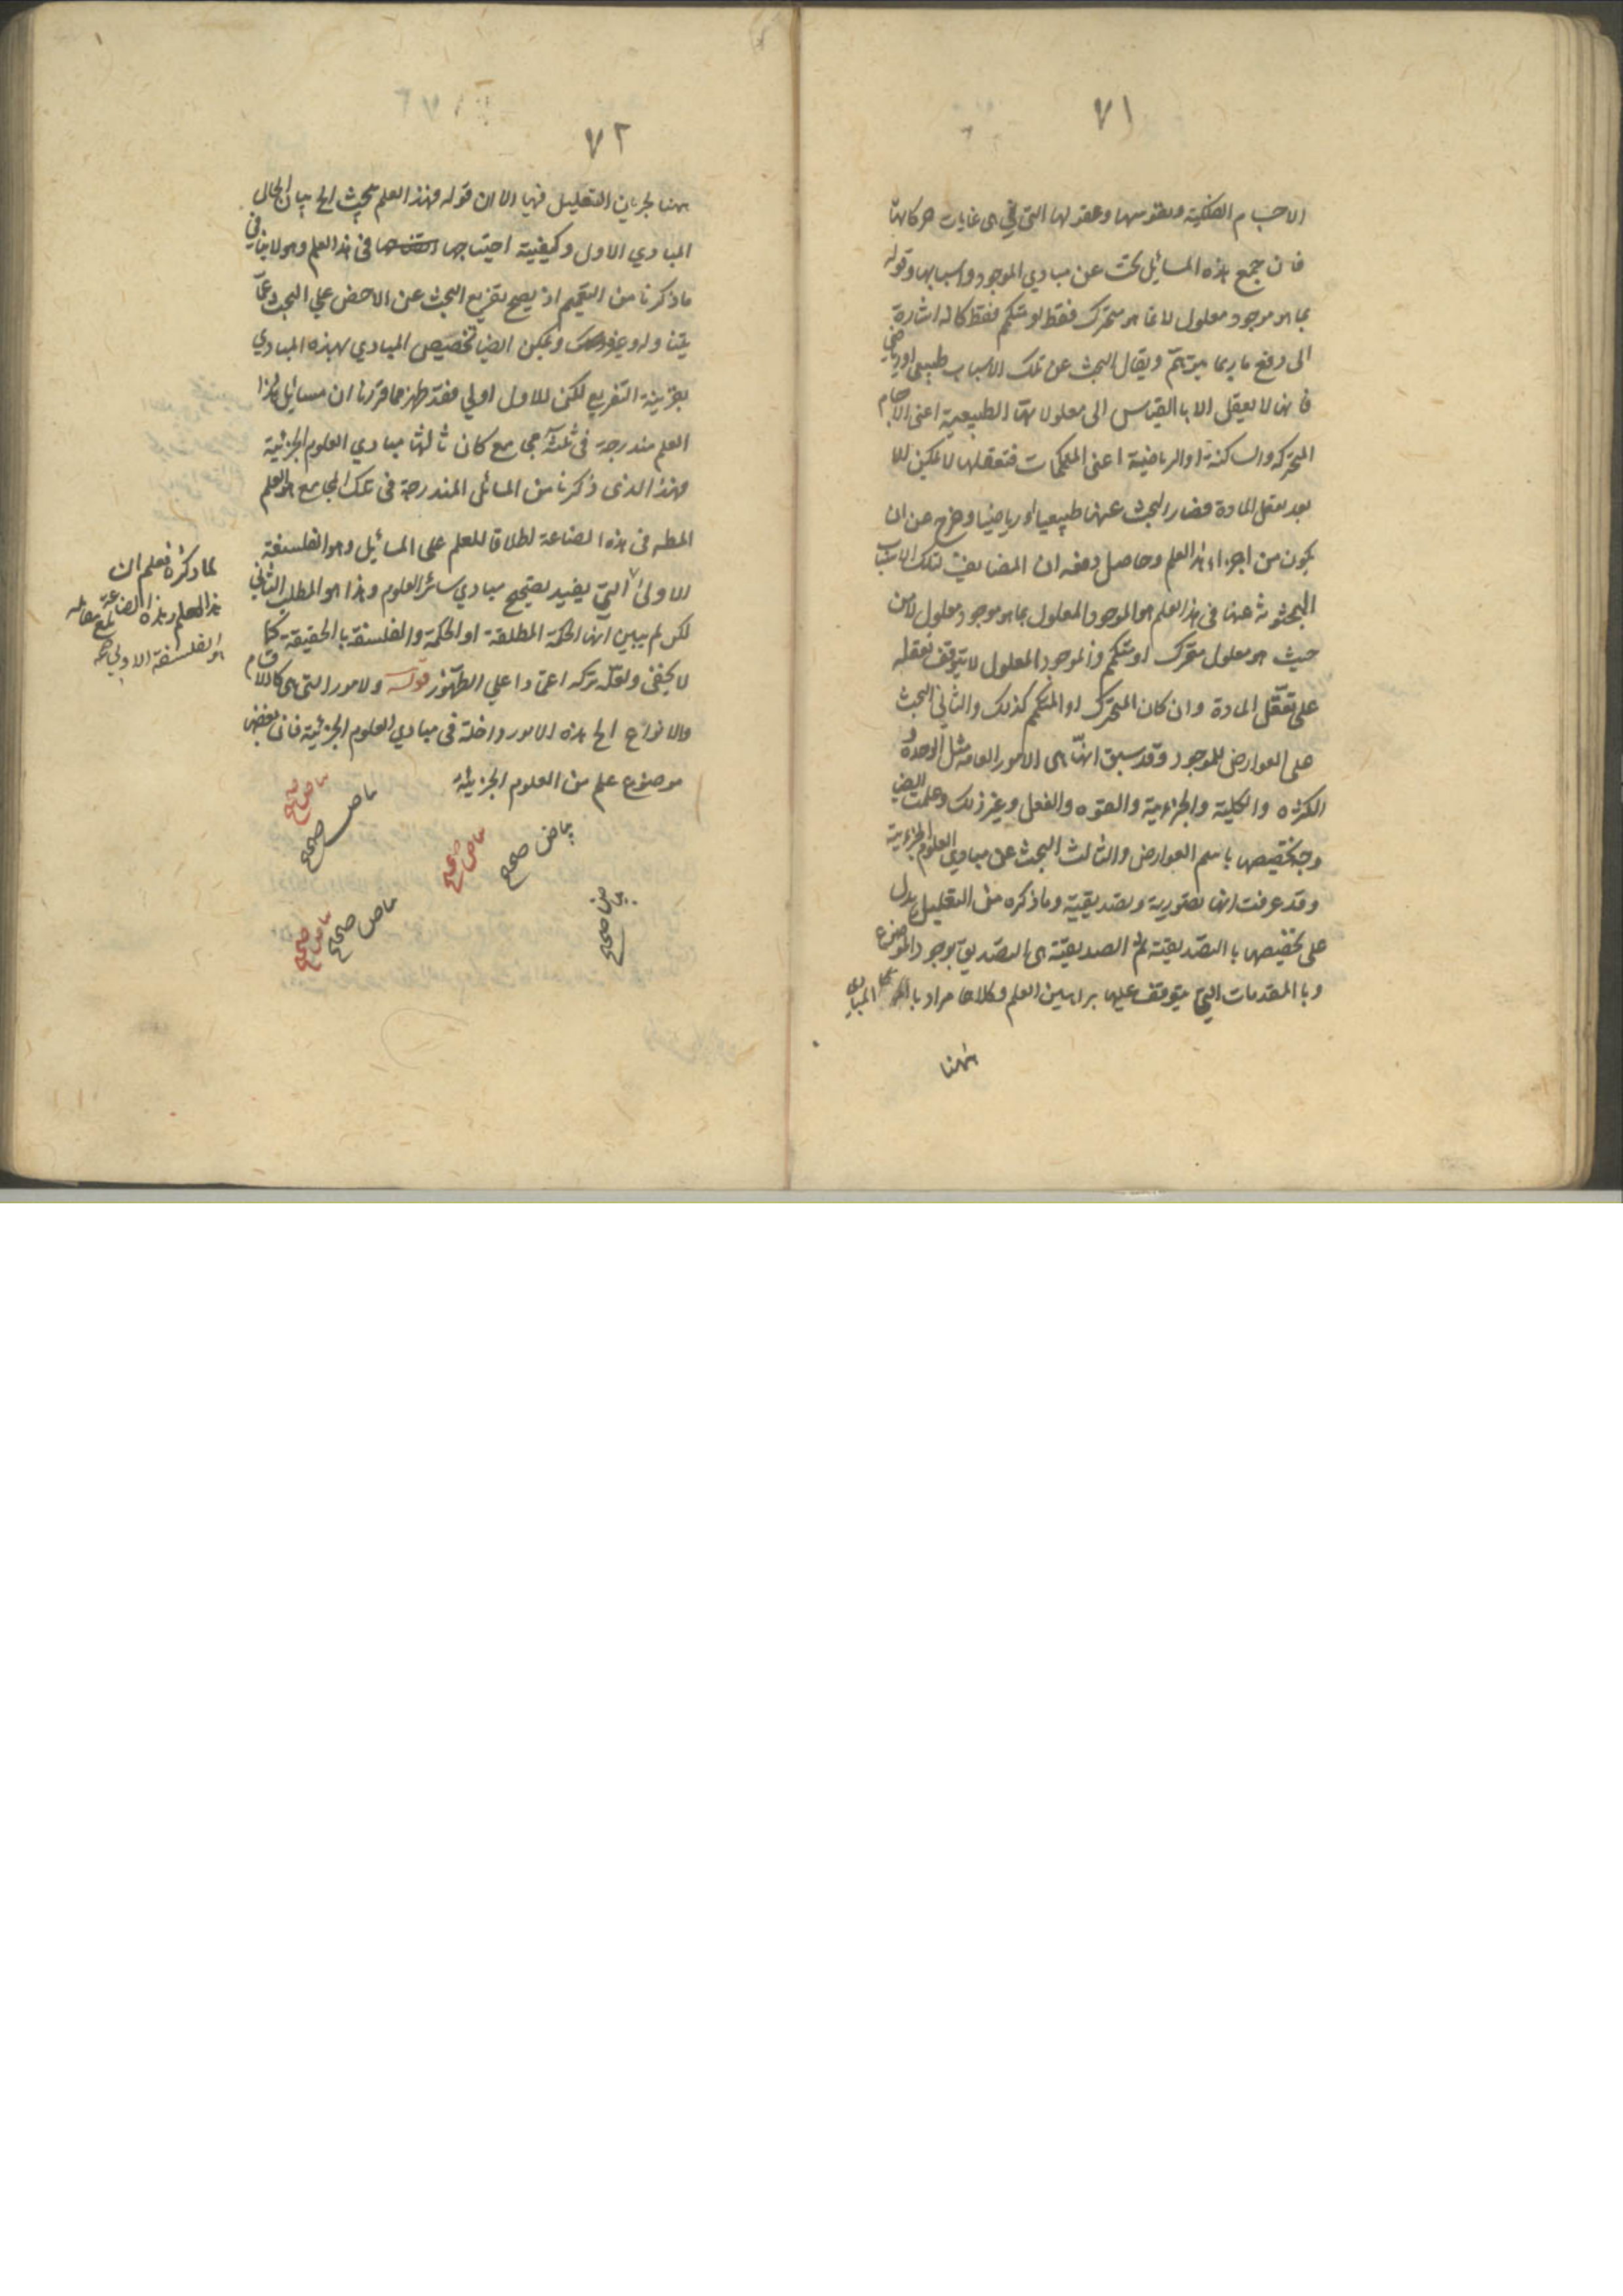 ٧١
الاجسام الفلكية ونفوسها وعقولها التي هي غايات حركاتها
فان جمع هذه المسائل بحث عن مبادي الموجود واسبابها وقوله
بما هو موجود معلول لا بما هو متحرك فقط او متكمم فقط كانه اشارة
الى دفع ما ربما يتوهم ويقال البحث عن تلك الاسباب طبيعي او رياضي
فانها لا يعقل الا بالقياس الى معلولاتها الطبيعية اعنى الاجسام
المتحركه والساكنة او الرياضية اعنى المتكممات فتعقلها لا يمكن الا
بعد تعقل المادة فصار البحث عنها طبيعيا او رياضيا وخرج عن ان
يكون من اجزاء هذا العلم وحاصل دفعه ان المضايف لتلك الاسباب
المبحوثة عنها فى هذا العلم هو الموجود المعلول بما هو موجود معلول لا من
حيث هو معلول متحرك او متكمم والموجود المعلول لا يتوقف تعقله
على تعقل المادة وان كان المتحرك او المتكمم كذلك والثاني البحث
على العوارض للموجود وقد سبق انها هى الامور العامه مثل الوحدة و
الكثرة والكلية والجزءية والقوه والفعل وغير ذلك وعلمت ايض
وجه تخصيصها باسم العوارض والثالث البحث عن مبادي العلوم الجزءية
وقد عرفت انها تصورية وتصديقية وما ذكره من التعليل يدل
على تخصيصها با التصديقية لان الصديقية هى التصديق بوجود الموضوع
وبا المقدمات التي يتوقف عليها براهين العلم وكلاهما مراد با المبادي
ههنا
٧٢
ههنا لجريان التعليل فيها الا ان قوله فهذا العلم يبحث الخ بيان لحال
المبادي الاول وكيفية احتياجها فى هذا العلم وهو لا ينافي
ما ذكرنا من التعميم اذ يصح تفريع البحث عن الاخص على البحث عما
يتناوله وغيره ويمكن ايضا تخصيص المبادي بهذه المبادي
بقرينة التفريع لكن الاول اولي فقد ظهر مما قررنا ان مسائل هذا
العلم مندرجة فى ثلثة مجامع كان ثالثها مبادي العلوم الجزئية
فهذا الذى ذكرنا من المسائل المندرجة فى تلك المجامع هو العلم
المط فى هذه الصناعة اطلاقا للعلم على المسائيل وهو الفلسفة
الاولى التي يفيد تصحيح مبادي سائر العلوم وهذا هو المطلب الثاني
لكن لم يبين انها الحكمة المطلقة او الحكمة والفلسفة بالحقيقة كما
لا يخفى ولعله تركه اعتمادا علي الظهور قوله ولامور التى هى كالاقسام
والانواع الخ هذه الامور داخلة فى مبادي العلوم الجزئية فان بعض
موضوع علم من العلوم الجزئية
لما ذكره فعلم ان
هذا العلم وهذه الصناعة
هو الفلسفة الاولى
بياض صحيح
بياض صحيح
بياض صحيح
بياض صحيح
بياض صحيح
بياض صحيح
بياض صحيح